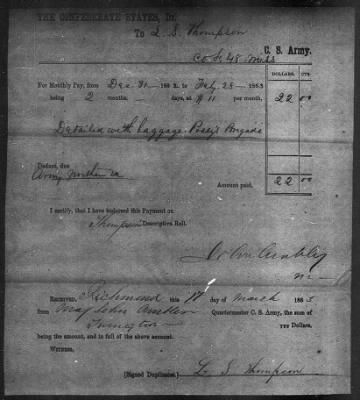 THE CONFEDERATE STATES, Dr.
To L. S. Thompson
Co F, 48 Miss
C. S. Army.
DOLLARS. CTS.
For Monthly Pay, from Dec 31 186 2 to Feby 28 186 3
being 2 months days, at $11 per month, 22 00
Detailed with baggage Posey's Brigade
Deduct, due
Army Northern Va
Amount paid. 22 00
I certify, that I have endorsed this Payment on
Thompson Descriptive Roll.
Received, Richmond this 17 day of March 186 3
from Maj John Ambler Quartermaster C. S. Army, the sum of
Twenty two Dollars,
being the amount, and in full of the above account.
Witness.
(Signed Duplicates.) L. S. Thompson